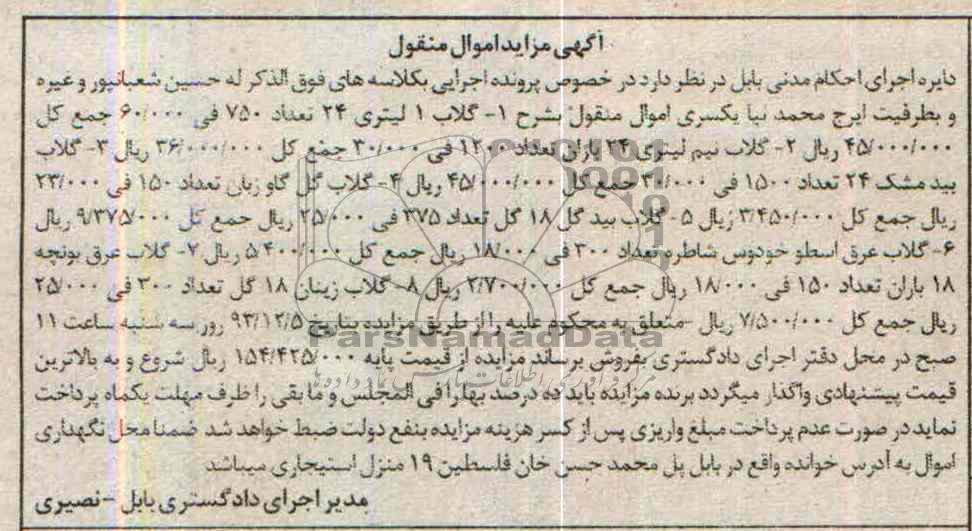 آگهی مزایده اموال منقول
دایره اجرای احکام مدنی بابل در نظر دارد در خصوص پرونده اجرایی بکلاسه های فوق الذکر له حسین شعبانپور و غیره
و بطرفیت ایرج محمد نیا یکسری اموال منقول بشرح ۱- گلاب ۱ لیتری ۲۴ تعداد ۷۵۰ فی ۶۰/۰۰۰ جمع کل
۴۵/۰۰۰/۰۰۰ ریال ۲- گلاب نیم لیتری ۲۴ باران تعداد ۱۲۰۰ فی ۳۰/۰۰۰ جمع کل ۳۶/۰۰۰/۰۰۰ ریال ۳- گلاب
بید مشک ۲۴ تعداد ۱۵۰۰ فی ۳۰/۰۰۰ جمع کل ۴۵/۰۰۰/۰۰۰ ریال ۴- گلاب گل گاو زبان تعداد ۱۵۰ فی ۲۳/۰۰۰
ریال جمع کل ۳/۴۵۰/۰۰۰ ریال ۵- گلاب بید گل ۱۸ گل تعداد ۳۷۵ فی ۲۵/۰۰۰ ریال جمع کل ۹/۳۷۵/۰۰۰ ریال
۶- گلاب عرق اسطو خودوس شاطره تعداد ۳۰۰ فی ۱۸/۰۰۰ ریال جمع کل ۵/۴۰۰/۰۰۰ ریال ۷- گلاب عرق یونجه
۱۸ باران تعداد ۱۵۰ فی ۱۸/۰۰۰ ریال جمع کل ۲/۷۰۰/۰۰۰ ریال ۸- گلاب زنیان ۱۸ گل تعداد ۳۰۰ فی ۲۵/۰۰۰
ریال جمع کل ۷/۵۰۰/۰۰۰ ریال متعلق به محکوم علیه را از طریق مزایده بتاریخ ۹۳/۱۲/۵ روز سه شنبه ساعت ۱۱
ParsNamadData
صبح در محل دفتر اجرای دادگستری بفروش برساند مزایده از قیمت پایه ۱۵۴/۴۲۵/۰۰۰ ریال شروع و به بالاترین
قیمت پیشنهادی واگذار میگردد برنده مزایده باید ده درصد بها را فی المجلس و ما بقی را ظرف مهلت یکماه پرداخت
نماید در صورت عدم پرداخت مبلغ واریزی پس از کسر هزینه مزایده بنفع دولت ضبط خواهد شد ضمنا محل نگهداری
اموال به آدرس خوانده واقع در بابل پل محمد حسن خان فلسطین ۱۹ منزل استیجاری میباشد
مدیر اجرای دادگستری بابل - نصیری